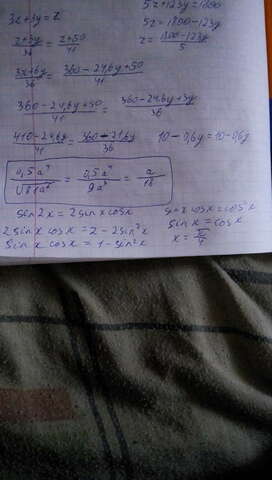 3x+3y=z
5z+123y=1800
5z=1800-123y
z=(1800-123y)/5
(z+3y)/36 = (z+50)/41
(3x+6y)/36 = (360-24,6y+50)/41
(360-24,6y+50)/41 = (360-24,6y+3y)/36
(410-24,6y)/41 = (360-21,6y)/36
10-0,6y=10-0,6y
0,5a⁴/√81a⁶ = 0,5a⁴/9a³ = a/18
sin2x=2sinxcosx
2sinxcosx=2-2sin²x
sinxcosx=1-sin²x
sinxcosx=cos²x
sinx=cosx
x=π/4